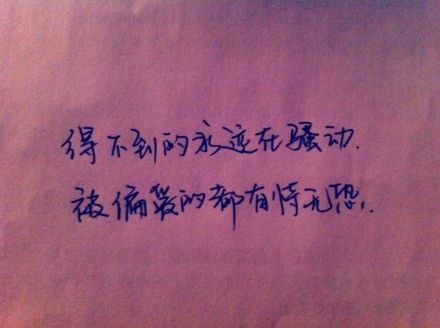 得不到的永远在骚动.
被偏爱的都有恃无恐.